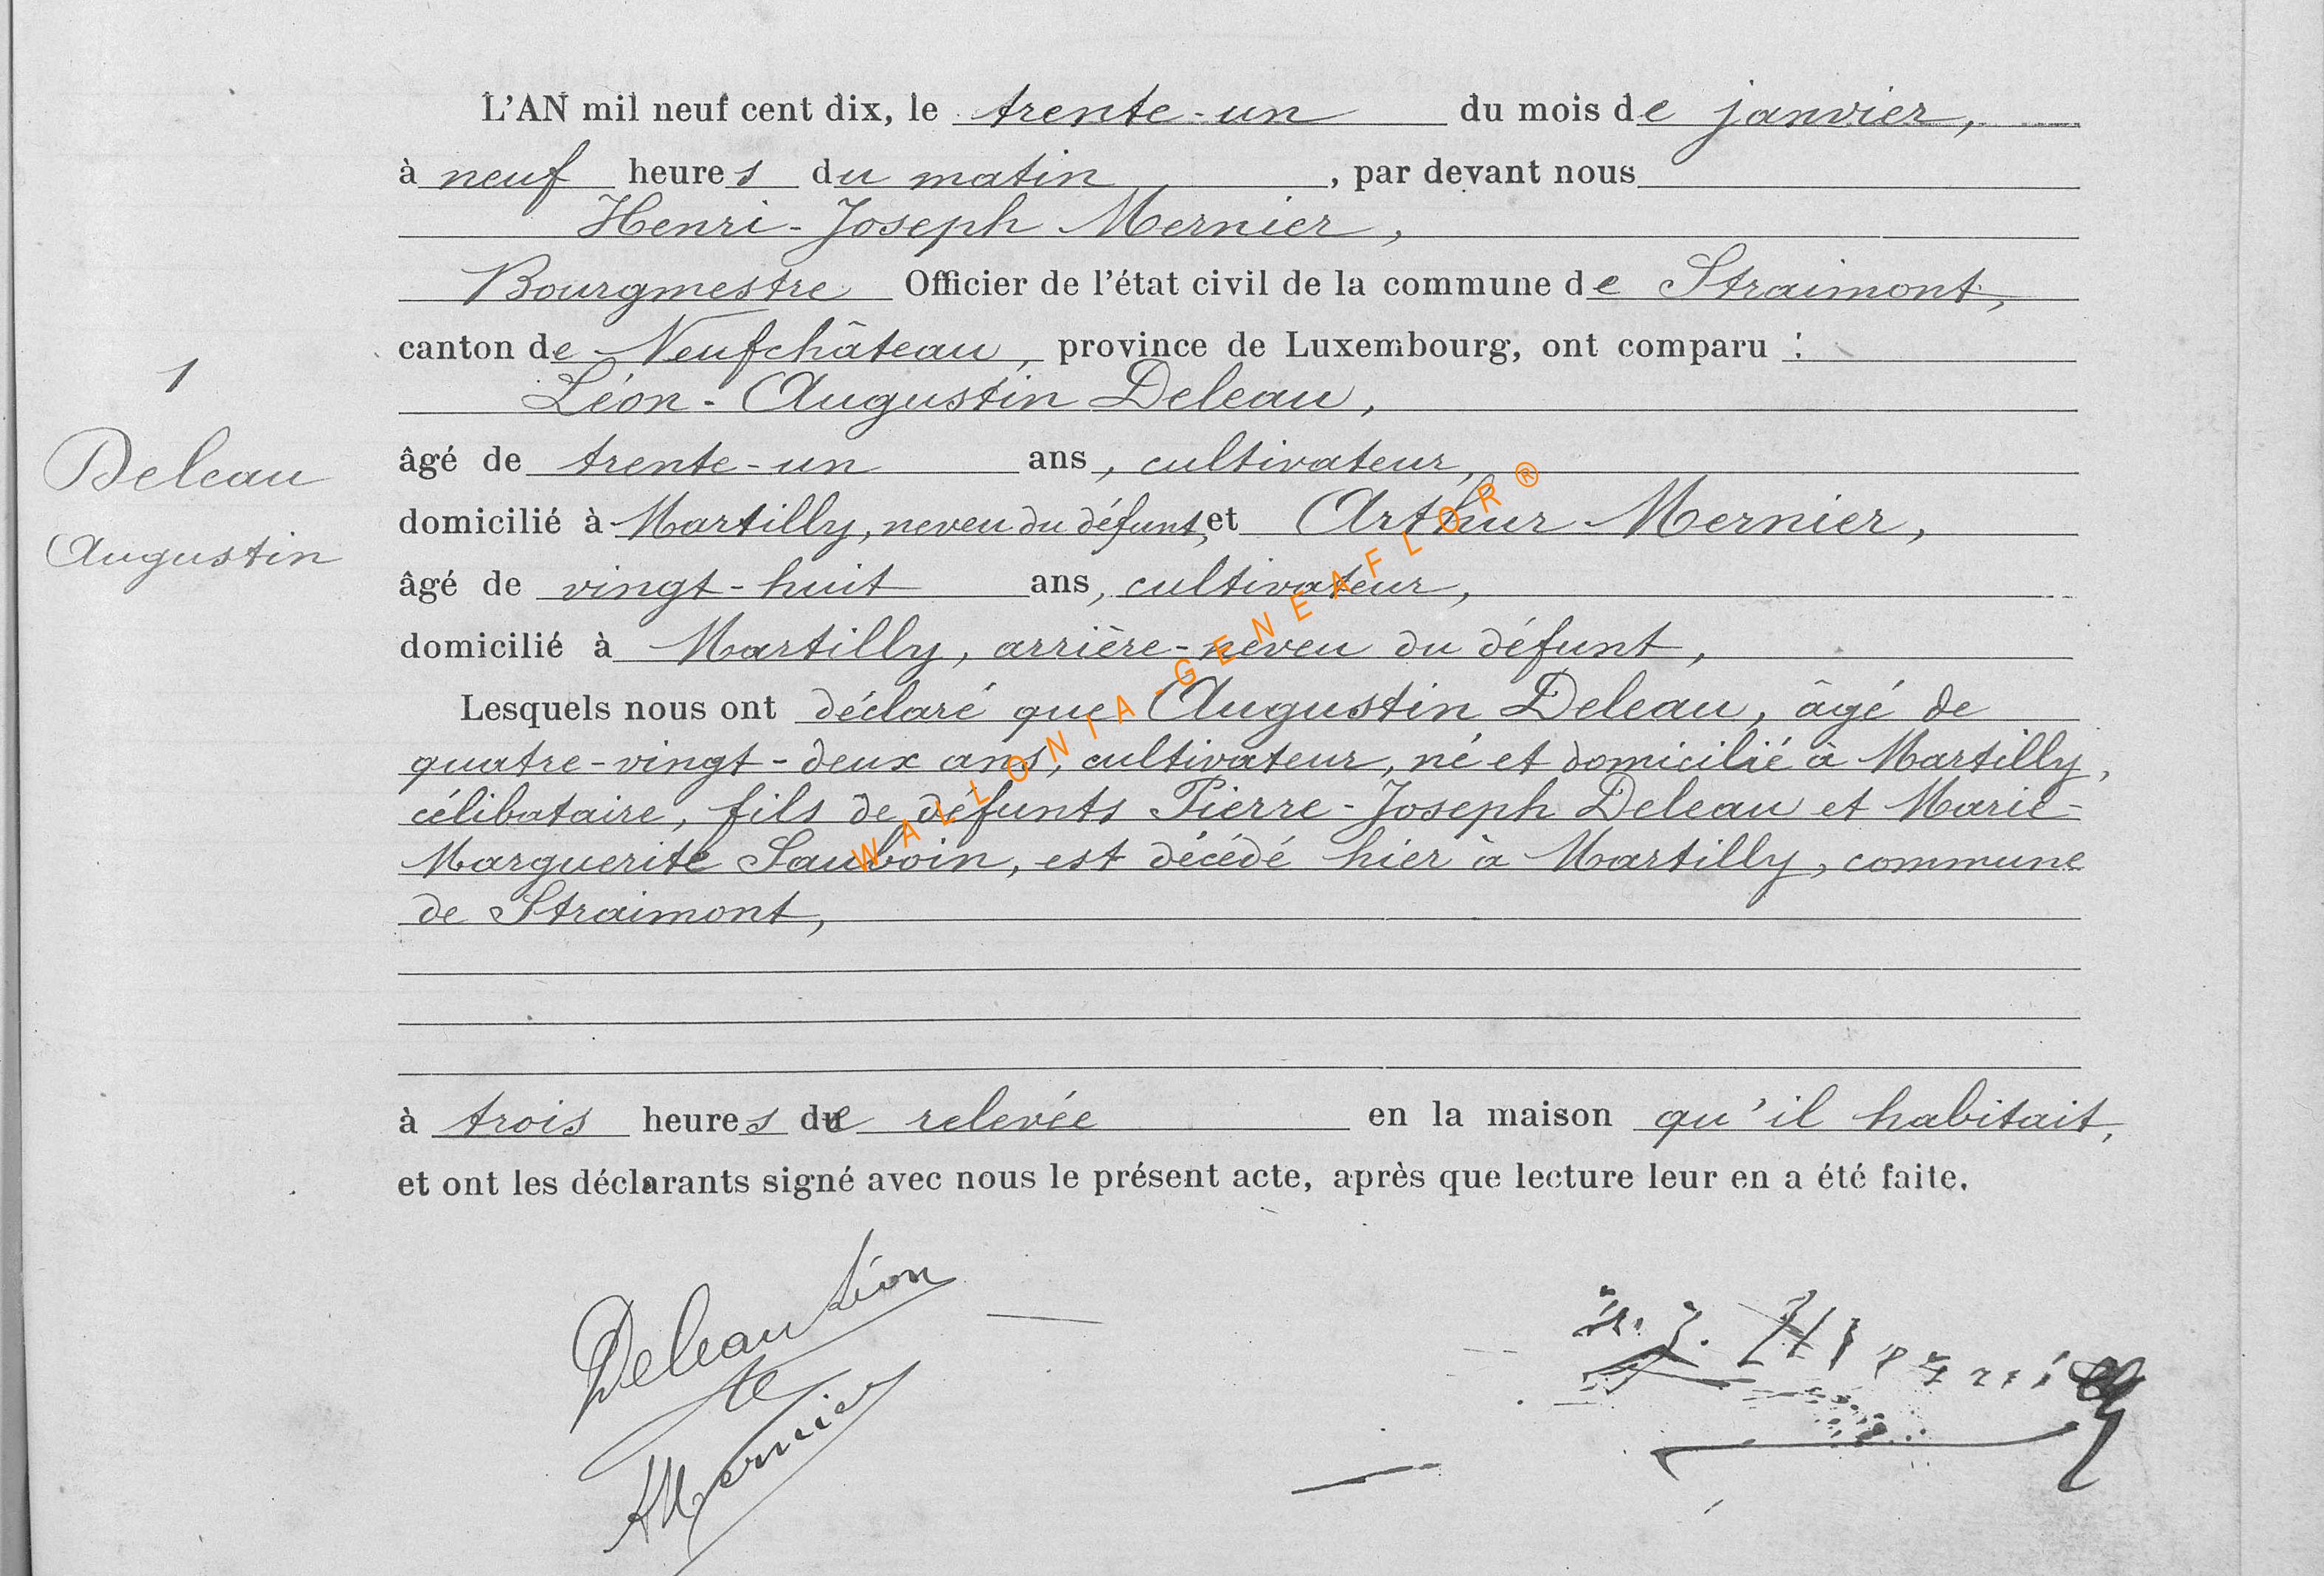 L'AN mil neuf cent dix, le trente-un du mois de janvier,
à neuf heures du matin, par devant nous
Henri-Joseph Mernier,
Bourgmestre Officier de l'état civil de la commune de Straimont,
canton de Neufchâteau, province de Luxembourg, ont comparu :
Léon-Augustin Deleau,
âgé de trente-un ans, cultivateur,
domicilié à Martilly, neveu du défunt, et Arthur Mernier,
âgé de vingt-huit ans, cultivateur,
domicilié à Martilly, arrière-neveu du défunt,
Lesquels nous ont déclaré que Augustin Deleau, âgé de
quatre-vingt-deux ans, cultivateur, né et domicilié à Martilly,
célibataire, fils de défunts Pierre-Joseph Deleau et Marie-
Marguerite Sauboin, est décédé hier à Martilly, commune
de Straimont,
à trois heures de relevée en la maison qu'il habitait,
et ont les déclarants signé avec nous le présent acte, après que lecture leur en a été faite.
1
Deleau
Augustin
Deleau Léon
A Mernier
WALLONIA-GENEAFLOR®